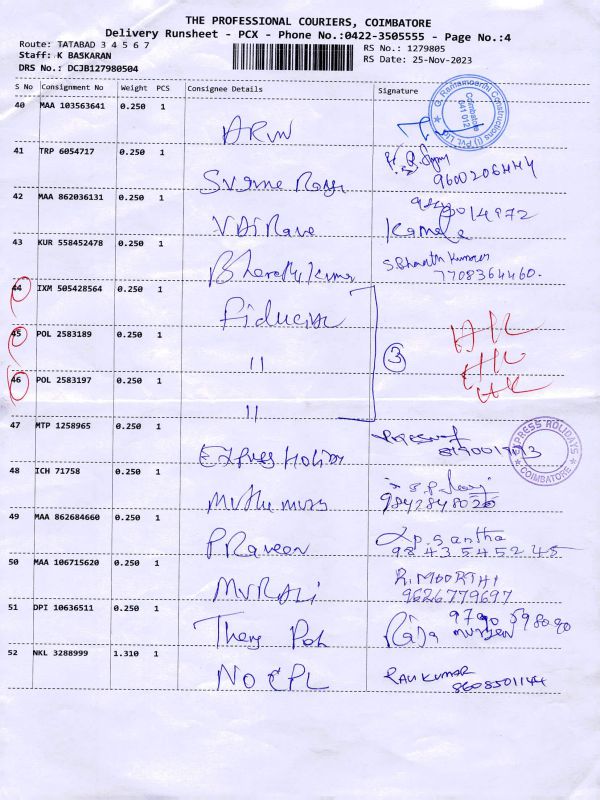 THE PROFESSIONAL COURIERS, COIMBATORE
Delivery Runsheet - PCX - Phone No.:0422-3505555 - Page No.:4
Route: TATABAD 3 4 5 6 7
RS No.: 1279805
Staff: K BASKARAN
RS Date: 25-Nov-2023
DRS No.: DCJB127980504
S No Consignment No Weight PCS Consignee Details Signature
40 MAA 103563641 0.250 1
ARUN
G. Ramamoorthi Constructions (I) Pvt Ltd
Coimbatore
641 012
41 TRP 6054717 0.250 1
9600206444
42 MAA 862036131 0.250 1
Kamala
43 KUR 558452478 0.250 1
Bharathi Kumar
S. Shanth Kumar
7708364460.
44 IXM 505428564 0.250 1
Fiducise
45 POL 2583189 0.250 1
"
3
46 POL 2583197 0.250 1
"
47 MTP 1258965 0.250 1
Express Holiday
EXPRESS HOLIDAYS
COIMBATORE
48 ICH 71758 0.250 1
9842848020
49 MAA 862684660 0.250 1
Praveen
P. Santha
9843545245
50 MAA 106715620 0.250 1
MURALI
R. MOORTHI
9626779697
51 DPI 10636511 0.250 1
Raja murugan
52 NKL 3288999 1.310 1
NO CPL
RAVI KUMAR
8608501144